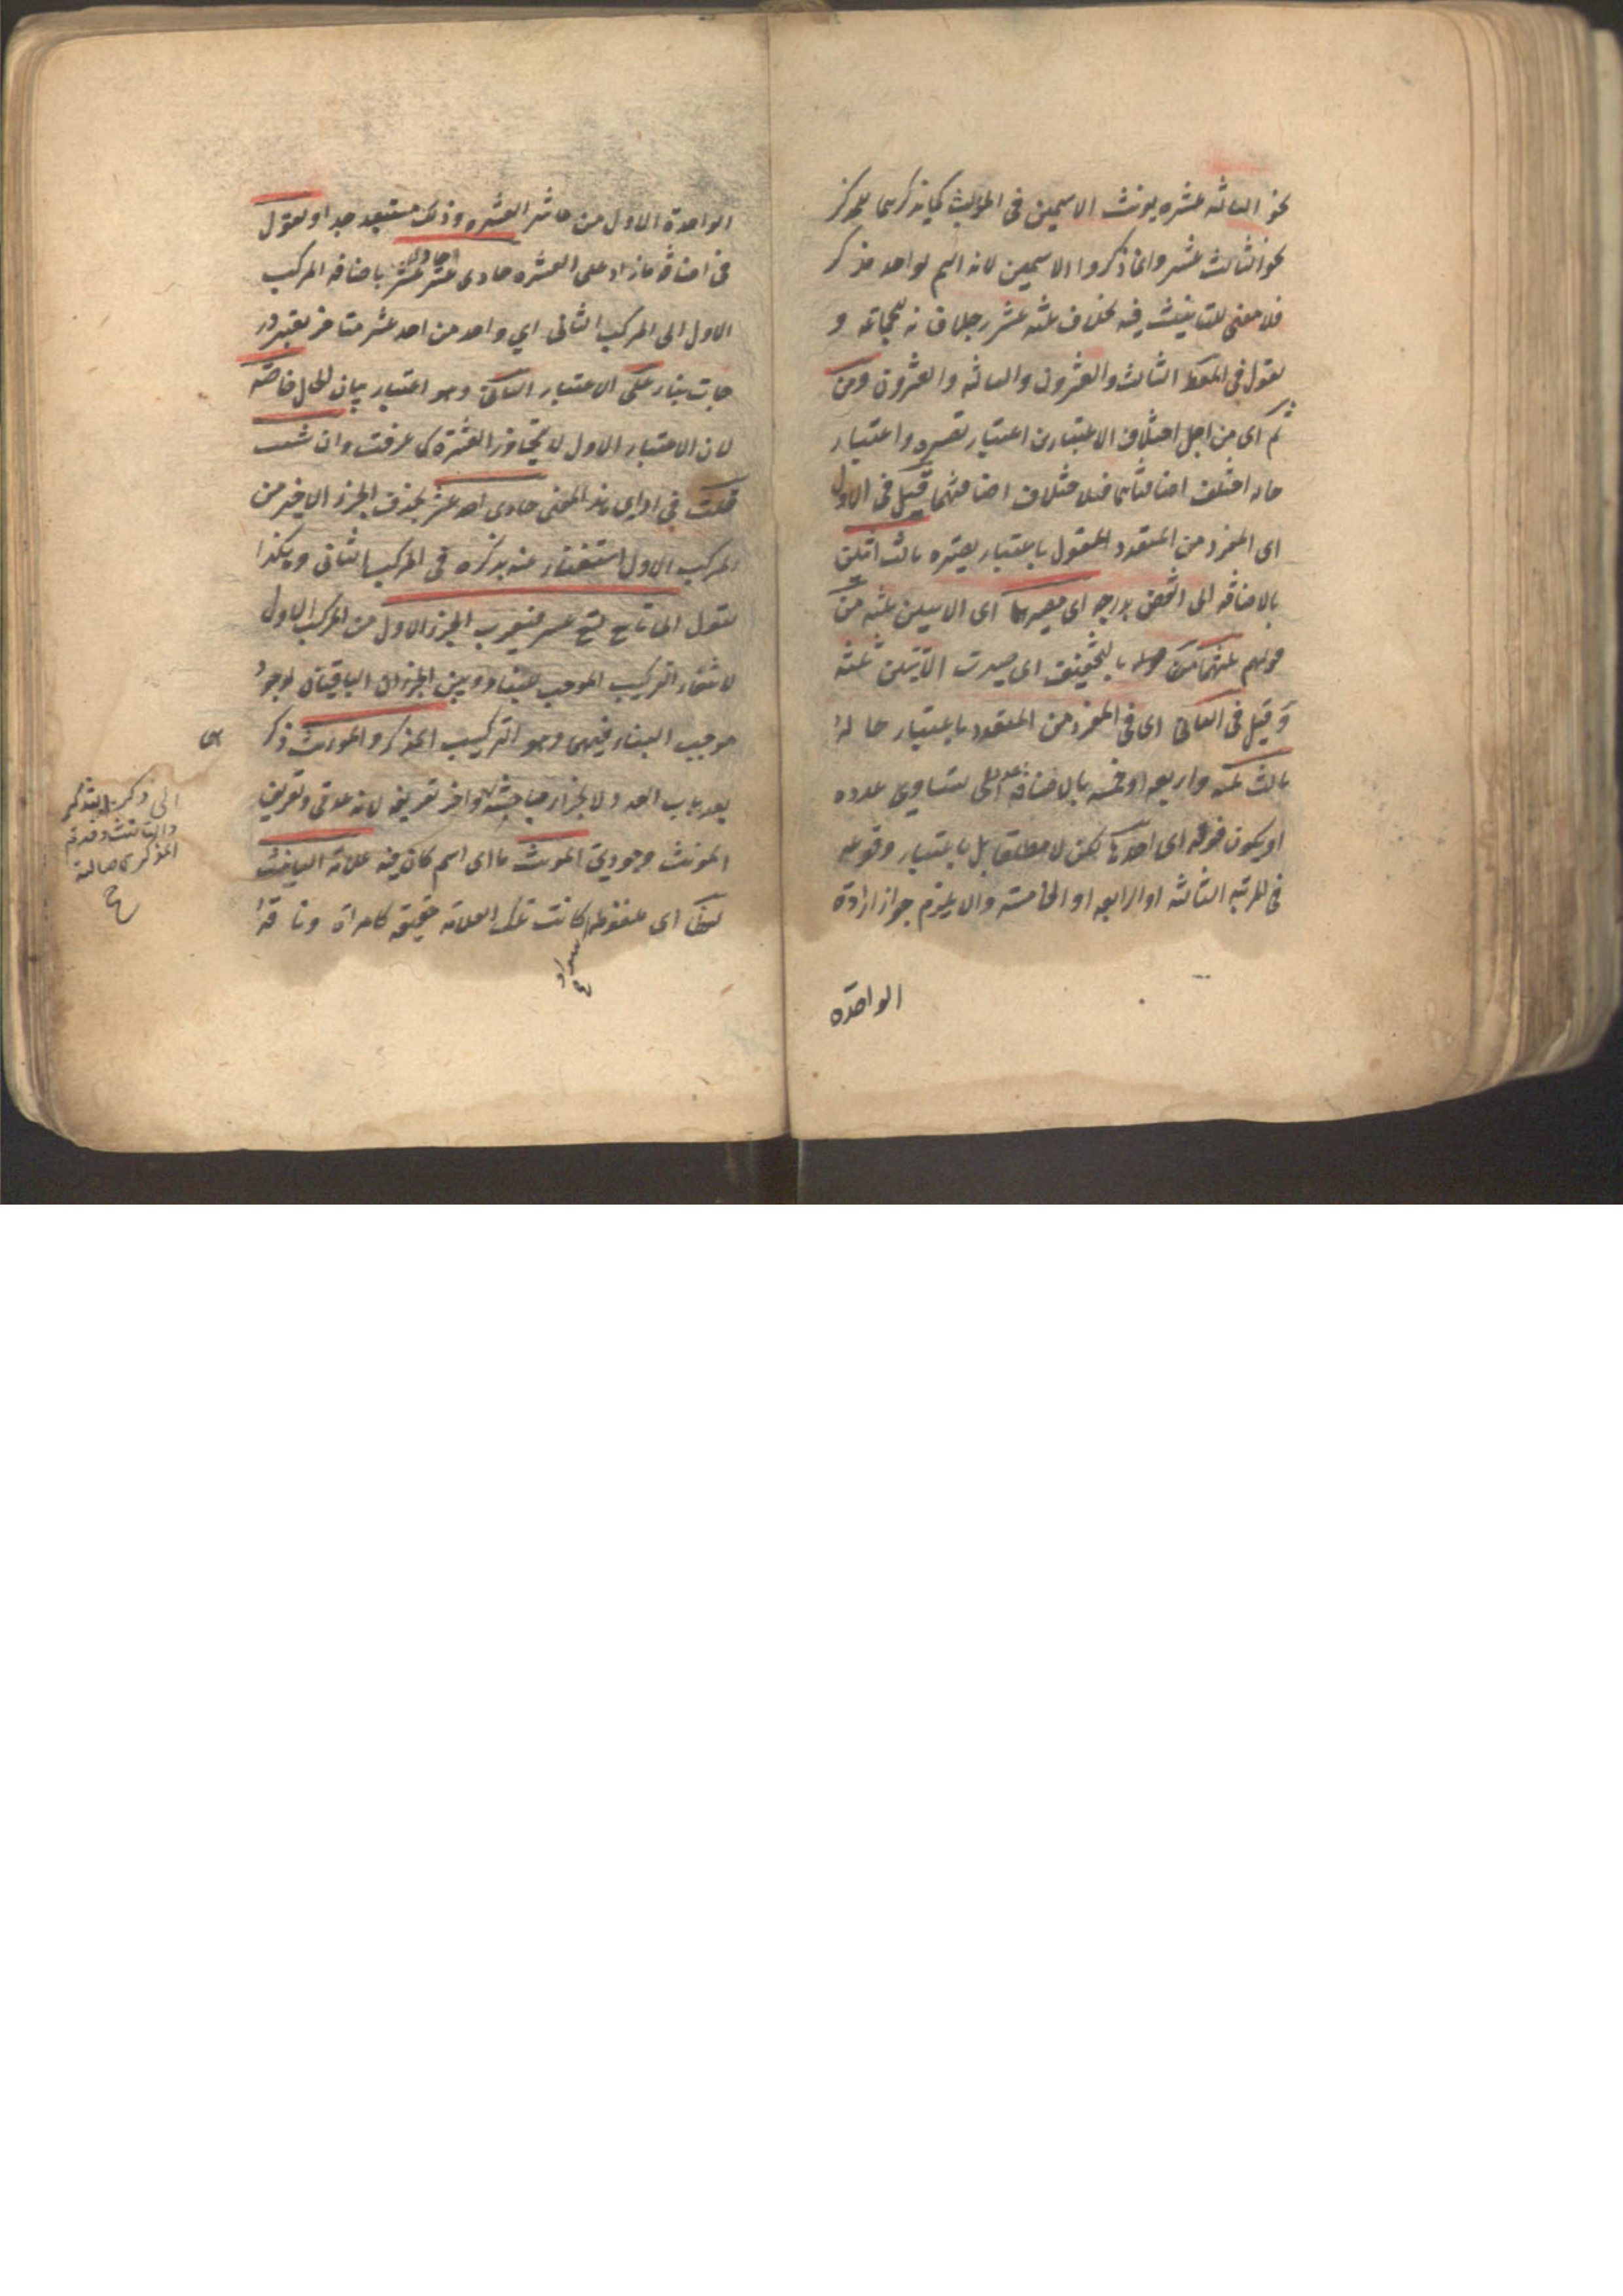 نحو الثالثة عشره يونث الاسمين فى المؤنث كما تذكرهما للمذكر
نحو الثالث عشر وانما ذكروا الاسمين لانه اسم لواحد مذكر
فلا معنى للتانيث فيه بخلاف ثلثه عشر رجلا فانه للجماعة و
تقول فى المعطوف الثالث والعشرون والثالثه والعشرون ومن
ثم اى من اجل اختلاف الاعتبارين اعتبار تصييره واعتبار
حاله اختلف اضافتاهما فلاختلاف اضافتهما قيل فى الاول
اى المفرد من المتعدد المقول باعتبار تصييره ثالث اثنين
بالاضافه الى انقص بدرجه اى مصيرهما اى الاثنين ثلثه من
قولهم ثلثتهما بالتخفيف اى صيرت الاثنين ثلثه
وقيل فى الثانى اى فى المفرد من المتعدد باعتبار حاله
ثالث ثلثه واربعه او خمسه بالاضافة الى عدد يساوى عدده
او يكون فوقه اى احدها لكن لا مطلقا بل باعتبار وقوعه
فى المرتبه الثالثه او الرابعه او الخامسه والا يلزم جواز ارادة
الواحدة
الواحدة الاول من عاشر العشره وذلك مستبعد جدا وتقول
فى اضافة ما زاد على العشره حادى عشر احد عشر باضافه المركب
الاول الى المركب الثانى اي واحد من احد عشر متاخر بعشر درجات
بناء على الاعتبار الثانى وهو اعتبار بيان الحال خاصة
لان الاعتبار الاول لا يتجاوز العشرة كما عرفت وان شئت
قلت فى اداء هذا المعنى حادى احد عشر بحذف الجزء الاخير من
المركب الاول استغناء عنه بذكره فى المركب الثانى وهكذا
تقول الى تاسع تسع عشر فيعرب الجزء الاول من المركب الاول
لانتفاء التركيب الموجب للبناء ويبنى الجزءان الباقيان لوجود
موجب البناء فيهما وهو التركيب المذكر والمونث ذكر
بعد باب العدد لانجرار مباحثه واخر تعريفه لانه عدمى وتعريف
المونث وجودى المونث ما اى اسم كان فيه علامة التانيث
لفظا اى ملفوظة كانت تلك العلامة حقيقة كامراة وناقة
سواء
الى ذكر التذكير
والتانيث وقدم
المذكر لاصالته